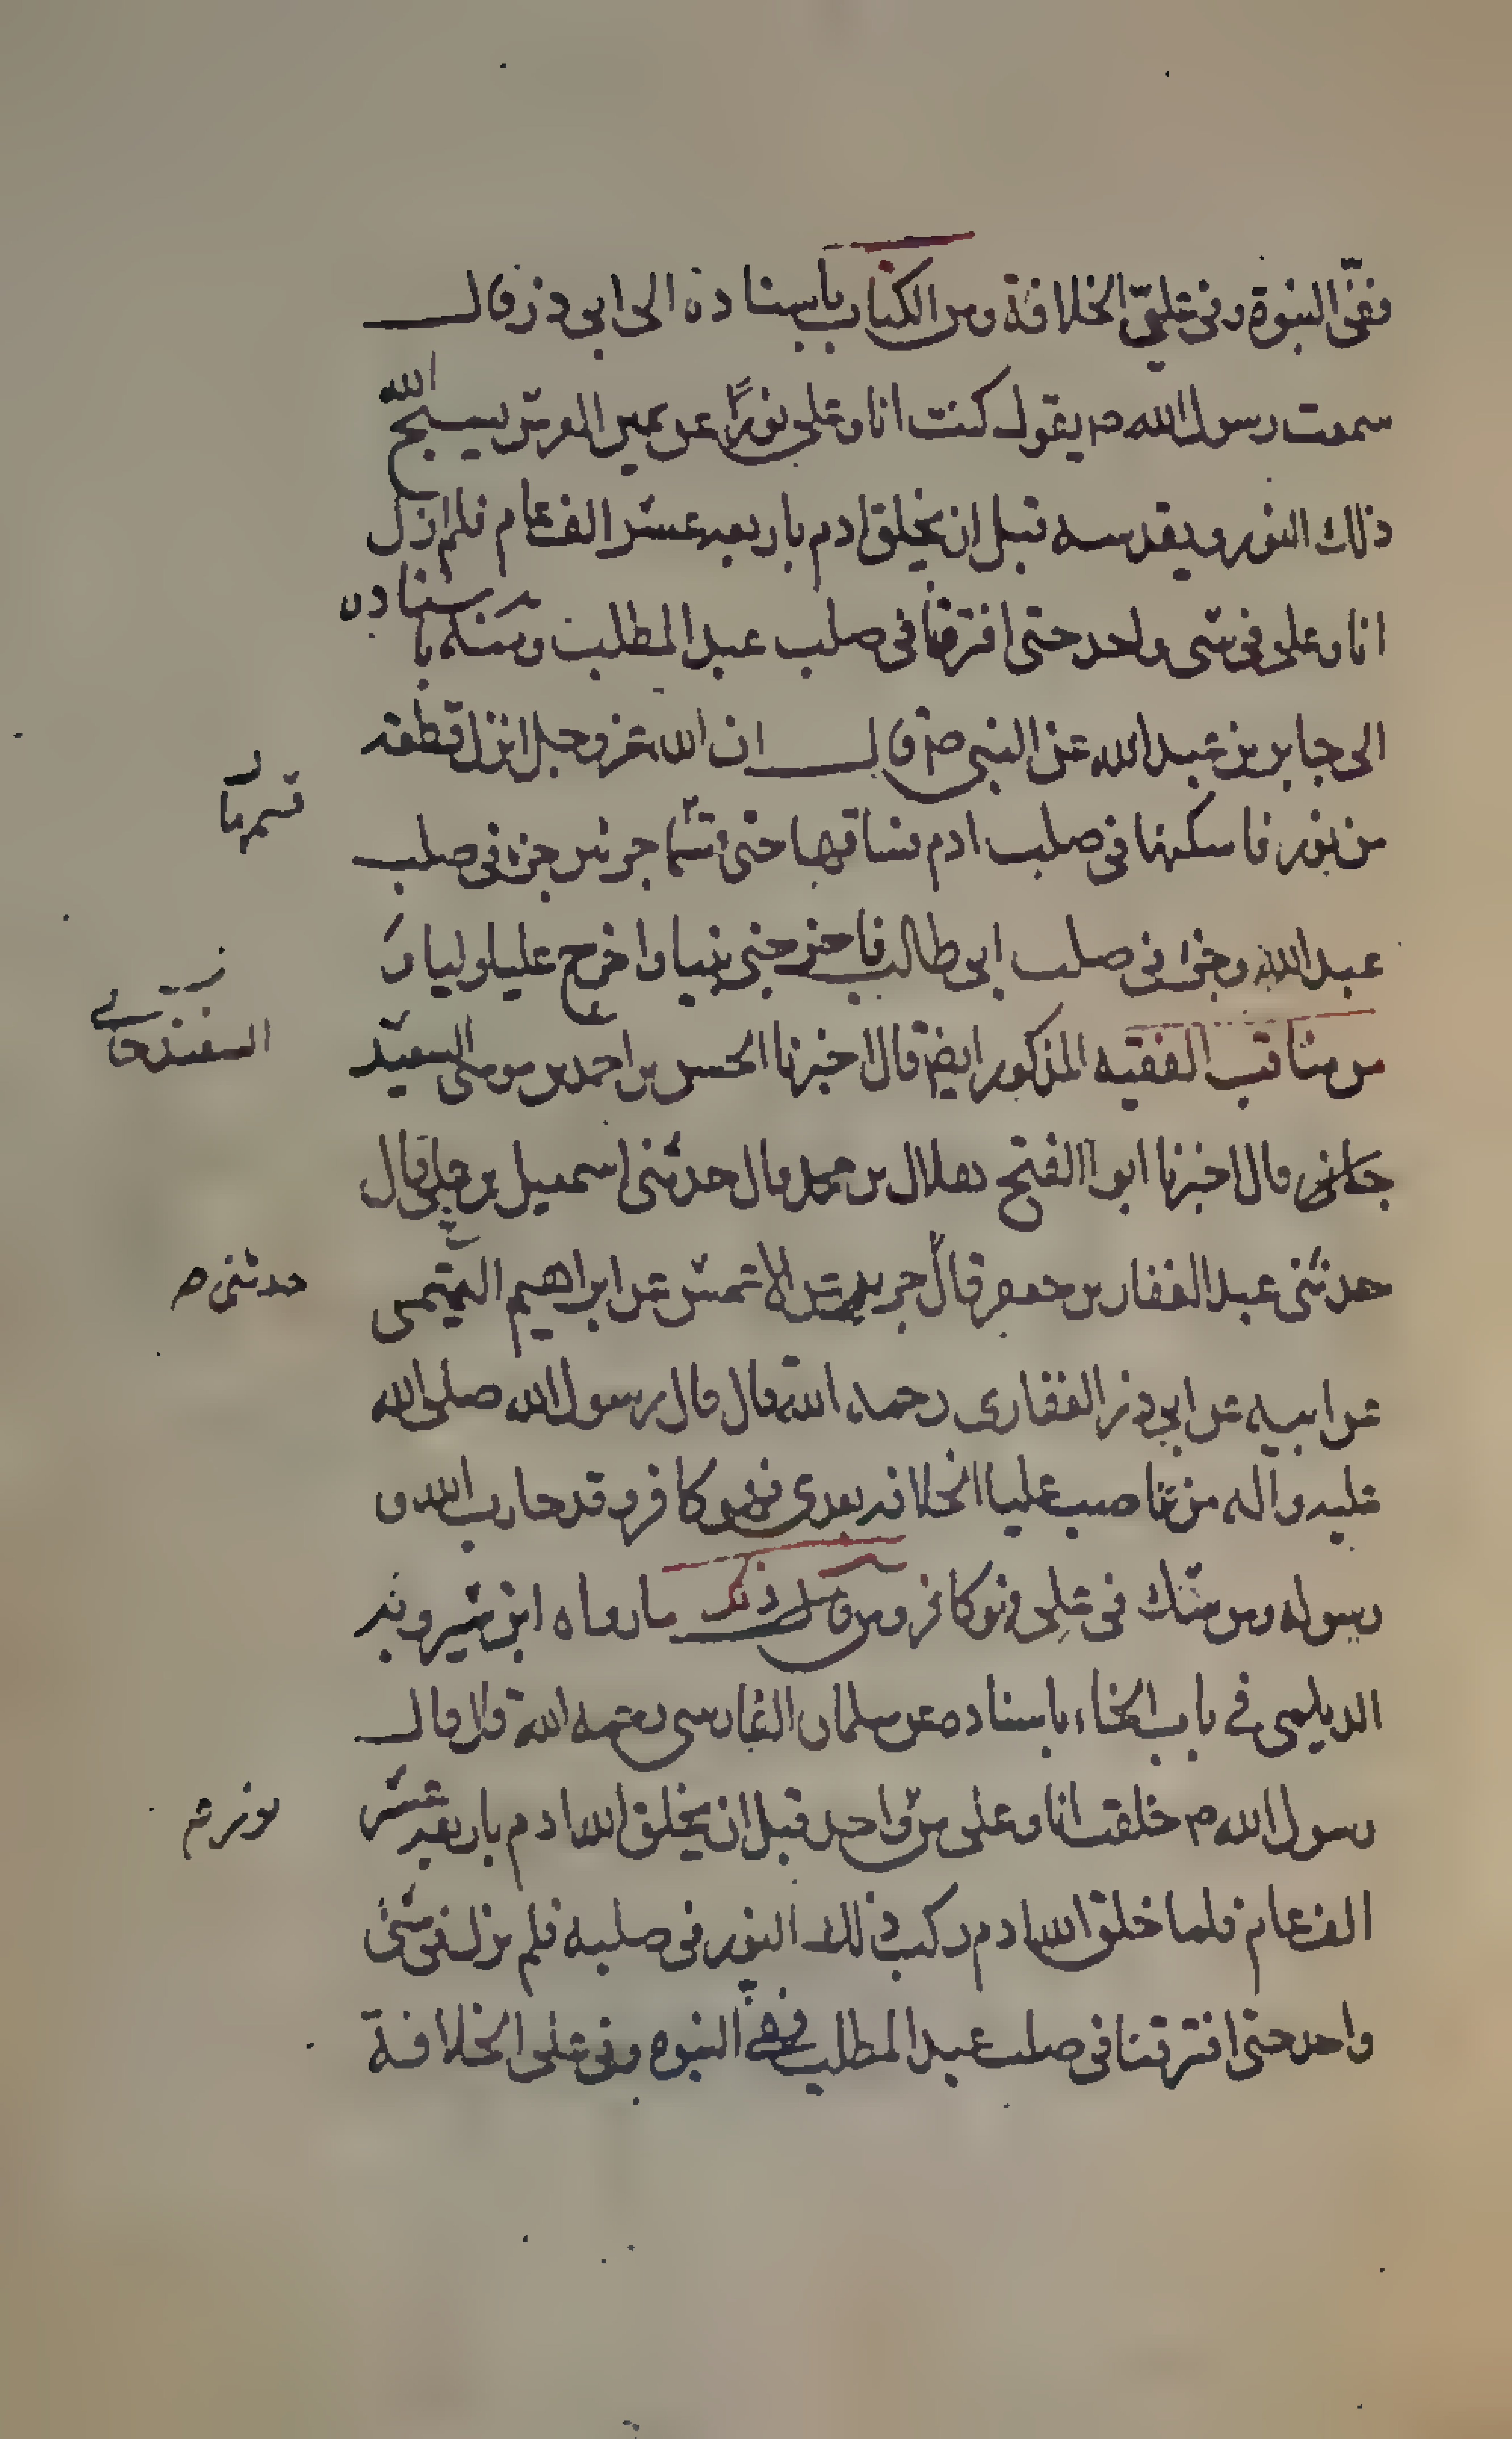 ففيّ النبوة وفى عليّ الخلافة ومن الكتاب باسناده الى ابى ذر قال
سمعت رسول الله ص يقول كنت انا وعلى نورًا عن يمين العرش يسبح الله
ذلك النور ويقدسه قبل ان يخلق ادم باربعه عشر الف عام فلم ازل
انا وعلى فى شى واحد حتى افترقنا فى صلب عبد المطلب ومنه باسناده
الى جابر بن عبد الله عن النبى ص قال ان الله عز وجل انزل قطعه
من نور فاسكنها فى صلب ادم فساقها حتى قسمها جزئين جزء فى صلب
قسمها
عبد الله وجزء فى صلب ابى طالب فاخرجنى نبيا واخرج عليا وليا و
من مناقب الفقيه المذكور ايضا قال اخبرنا الحسن بن احمد بن موسى
الغندجانى
قال اخبرنا ابو الفتح هلال بن محمد قال حدثنى اسمعيل بن على قال
حدثنى عبد الغفار بن جعفر قال جرير عن الاعمش عن ابراهيم التيمى
حدثنى ص
عن ابيه عن ابى ذر الغفارى رحمه الله قال قال رسول الله صلى الله
عليه واله من ناصب عليا الخلافه بعدى فهو كافر وقد حارب الله و
رسوله ومن شك فى على فهو كافر ومن ذلك ما رواه ابن شيرويه
الديلمى فى باب الخاء باسناده عن سلمان الفارسى رحمه الله قال قال
رسول الله ص خلقت انا وعلى من واحد قبل ان يخلق الله ادم باربعه عشر
نور
الف عام فلما خلق الله ادم ركب ذلك النور فى صلبه فلم نزل فى شى
واحد حتى افترقنا فى صلب عبد المطلب ففى النبوه وفى على الخلافة